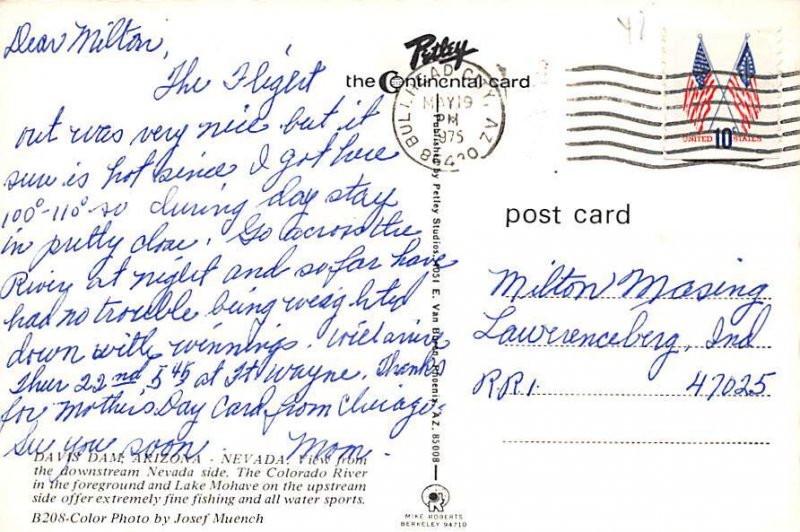 Dear Milton,
The Flight
out was very nice but it
sure is hot since I got here
100°-110° so during day stay
in pretty close. Go across the
River at night and so far have
had no trouble being weighted
down with winnings. Will arrive
Thur 22nd, 5:45 at Ft Wayne. Thanks
for Mother's Day Card from Chicago.
See you soon. Mom.
DAVIS DAM, ARIZONA - NEVADA. View from
the downstream Nevada side. The Colorado River
in the foreground and Lake Mohave on the upstream
side offer extremely fine fishing and all water sports.
B208-Color Photo by Josef Muench
Petley
the Continental card
Published by Petley Studios, 4051 E. Van Buren, Phoenix, AZ. 85008
MIKE ROBERTS
BERKELEY 94710
BULLHEAD CITY, AZ
MAY 19
PM
1975
86430
UNITED 10c STATES
post card
Milton Masing
Lawrenceberg, Ind
RR1. 47025